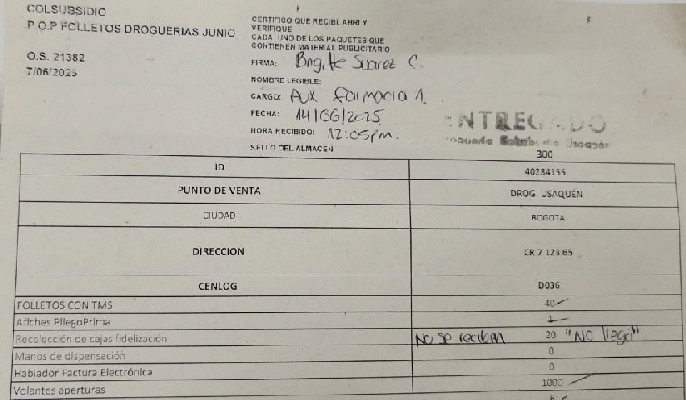 COLSUBSIDIO
P.O.P FOLLETOS DROGUERIAS JUNIO
O.S. 21382
7/06/2025
CERTIFICO QUE RECIBI ABRI Y
VERIFIQUE
CADA UNO DE LOS PAQUETES QUE
CONTIENEN MATERIAL PUBLICITARIO
FIRMA: Brigitte Suarez C.
NOMBRE LEGIBLE:
CARGO: Aux farmacia 1.
FECHA: 14/06/2025
HORA RECIBIDO: 12:05pm.
SELLO DEL ALMACEN
ENTREGADO
Usaquén
300
ID 40284155
PUNTO DE VENTA DROG. USAQUÉN
CIUDAD BOGOTA
DIRECCION CR 7 123 65
CENLOG D036
FOLLETOS CON TMS 40
Afiches Pliego Prima 1
Recolección de cajas fidelización No se reciben 20 "No llegó"
Manos de dispensación 0
Hablador Factura Electrónica 0
Volantes aperturas 1000